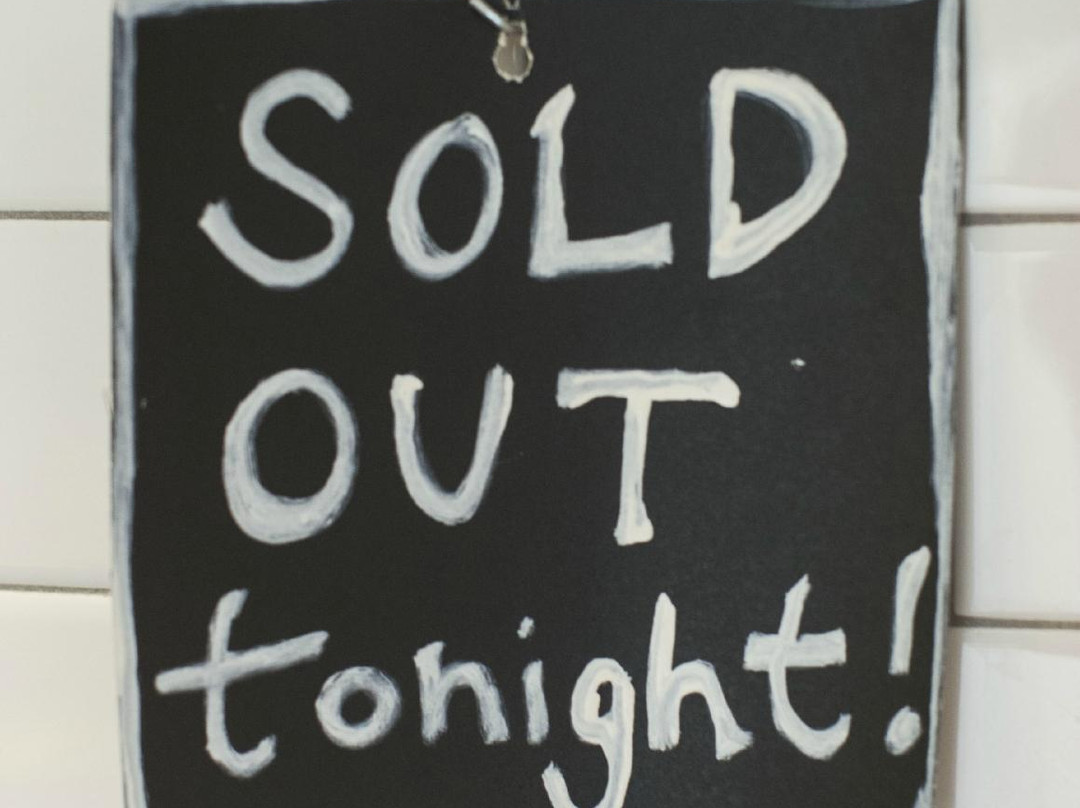 SOLD
OUT
tonight!